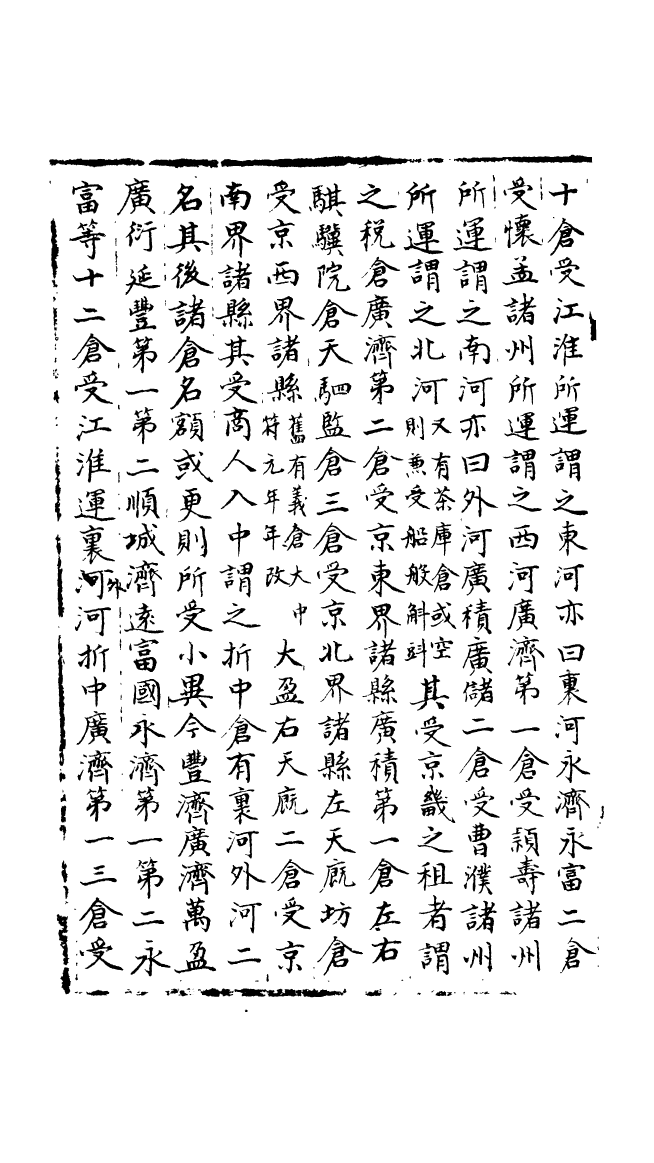 十倉受江淮所運謂之東河亦曰裏河永濟永富二倉
受懷孟諸州所運謂之西河廣濟第一倉受潁壽諸州
所運謂之南河亦曰外河廣積廣儲二倉受曹濮諸州
所運謂之北河又有茶庫倉或空則兼受船般斛㪷其受京畿之租者謂
之税倉廣濟第二倉受京東界諸縣廣積第一倉左右
騏驥院倉天駟監倉三倉受京北界諸縣左天廐坊倉
受京西界諸縣舊有義倉大中符元年年改大盈右天廐二倉受京
南界諸縣其受商人入中謂之折中倉有裏河外河二
名其後諸倉名額或更則所受小異今豐濟廣濟萬盈
廣衍延豐第一第二順城濟遠富國永濟第一第二永
富等十二倉受江淮運裏河外河折中廣濟第一三倉受